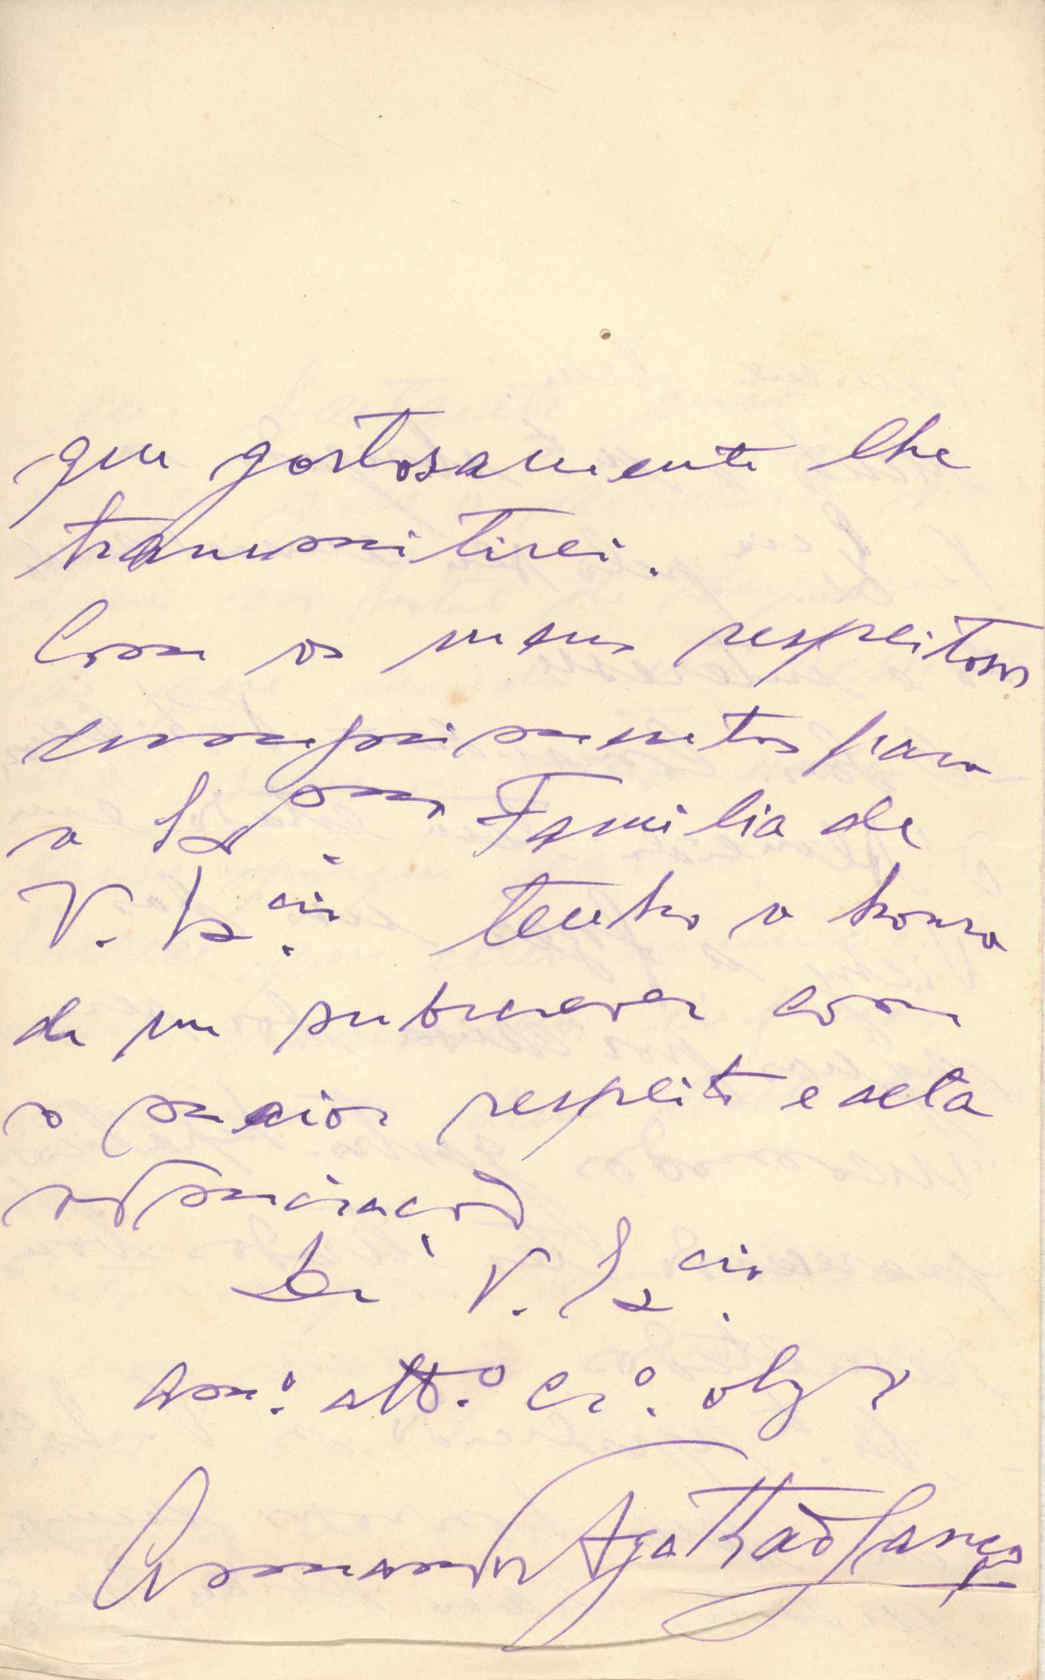 que gostosamente lhe
transmitirei.
Com os meus respeitosos
cumprimentos para
a Ex.ma Familia de
V. Ex.cia tenho a honra
de me subscrever com
o maior respeito e alta
admiração
De V. Ex.cia
Am.º att.º cr.º obg.º
Armando Agatão Lança